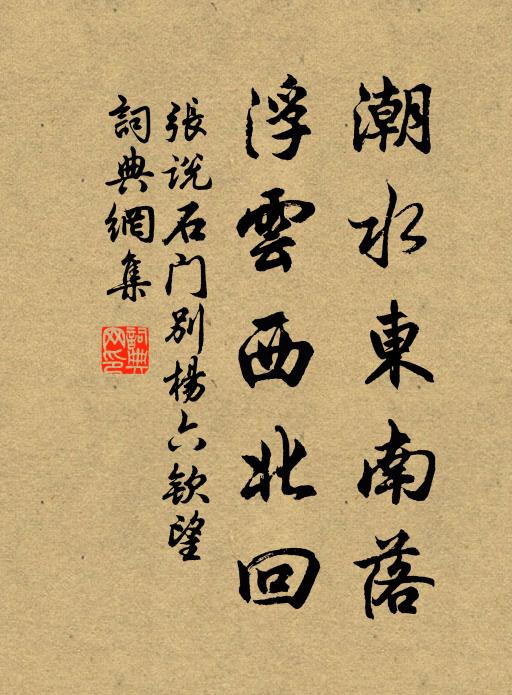 潮水東南落
浮雲西北回
張說石门別楊六欽望
詞典網集
詞典網印